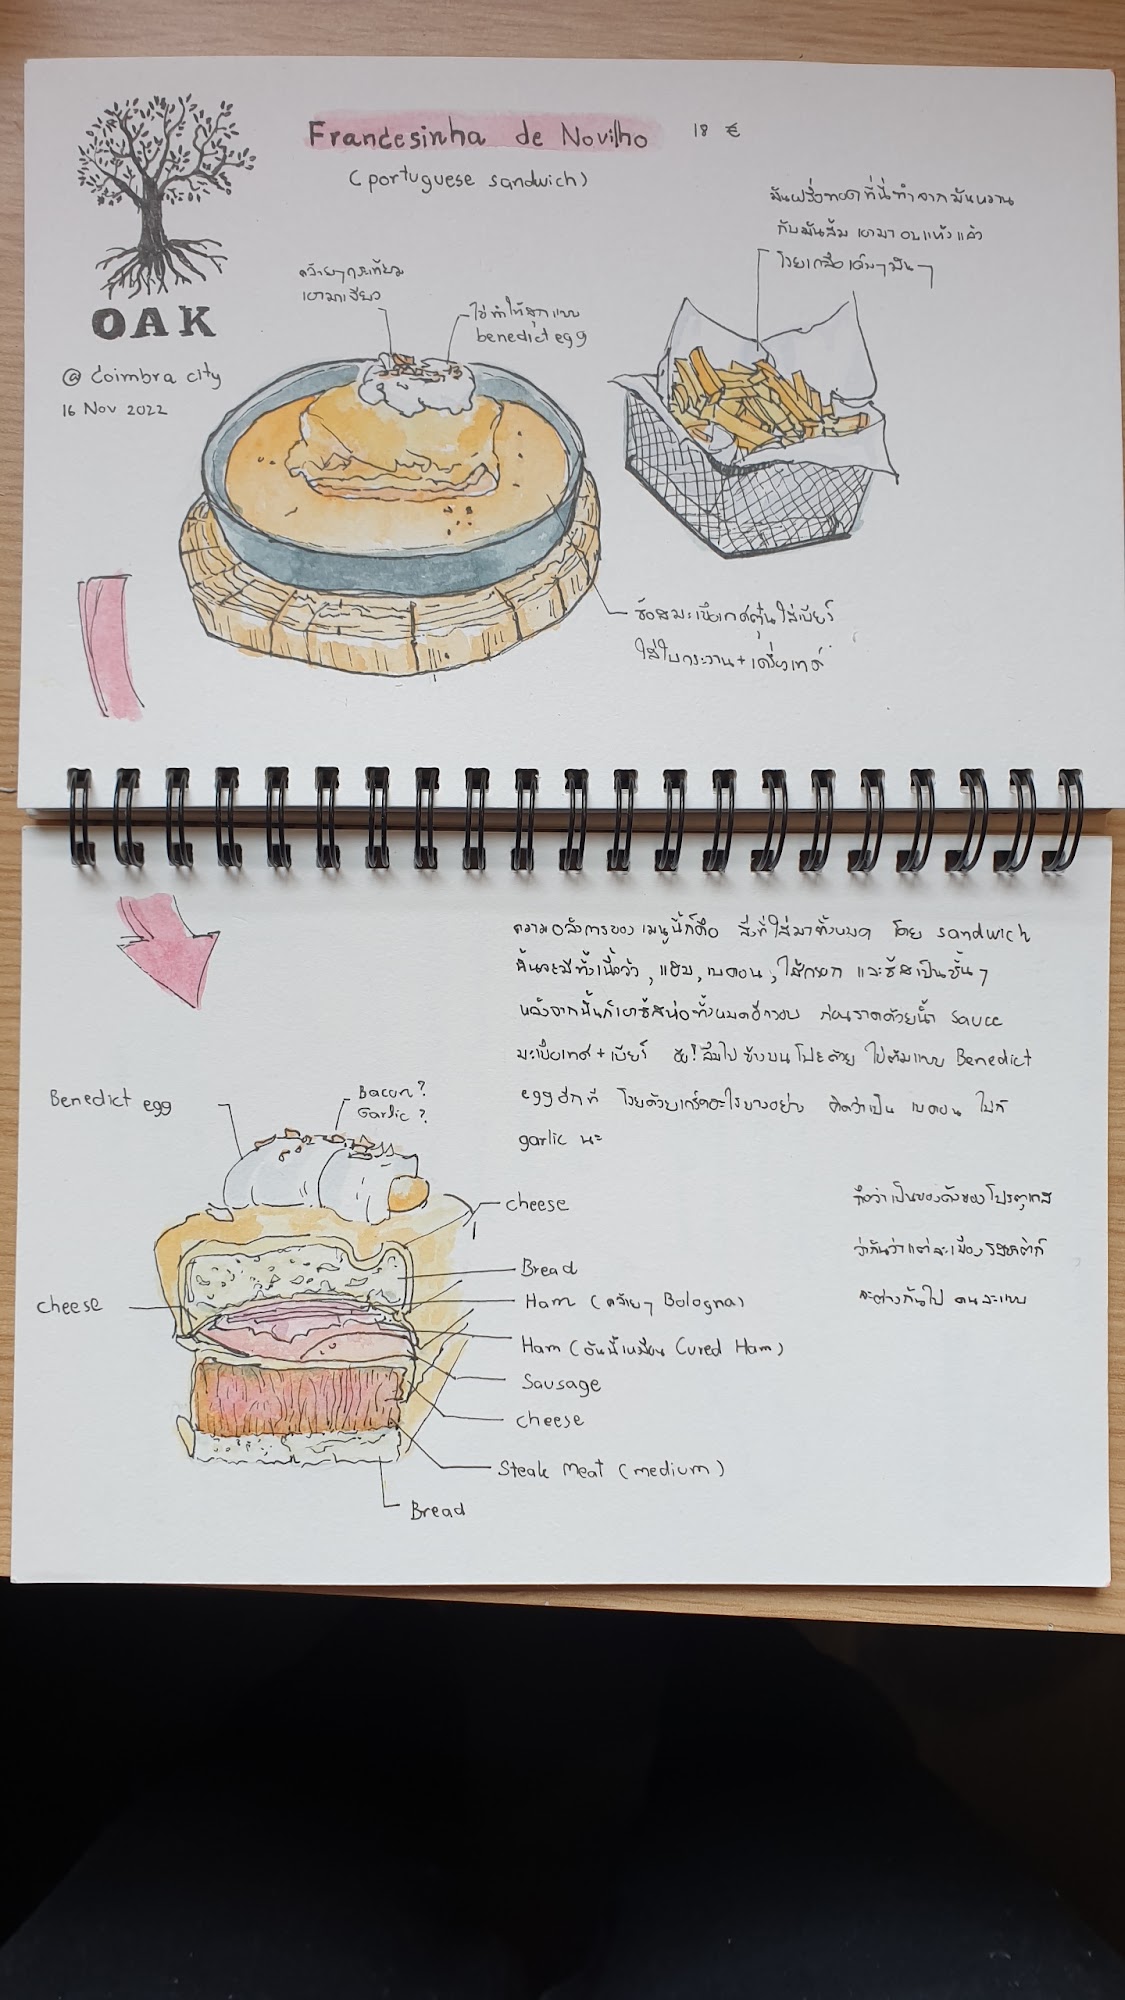 Francesinha de Novilho
18 €
(portuguese sandwich)
OAK
@ Coimbra city
16 Nov 2022
คล้ายๆกระเทียม
เอามาเจียว
ไข่ทำให้สุกแบบ
benedict egg
มันฝรั่งทอดที่นี่ทำจากมันหวาน
กับมันส้ม เอามาอบแห้งแล้ว
โรยเกลือ เค็มๆมันๆ
ซ้อสมะเขือเทศตุ๋นใส่เบียร์
ใส่ใบกระวาน+เครื่องเทศ
ความอลังการของเมนูนี้ก็คือ สิ่งที่ใส่มาทั้งหมด โดย sandwich
นั้นจะมีทั้งเนื้อวัว, แฮม, เบคอน, ไส้กรอก และชีสเป็นชั้นๆ
หลังจากนั้นก็เอาชีสห่อทั้งหมดอีกรอบ ก่อนราดด้วยน้ำ sauce
มะเขือเทศ+เบียร์ ลืมไป ข้างบนโปะด้วย ไข่ต้มแบบ Benedict
egg อีกที โรยด้วยเกร็ดอะไรบางอย่าง คิดว่าเป็น เบคอน ไม่ก็
garlic นะ
Benedict egg
Bacon?
Garlic?
cheese
Bread
cheese
Ham (คล้ายๆ Bologna)
Ham (อันนี้เหมือน Cured Ham)
Sausage
cheese
Steak meat (medium)
Bread
ถือว่าเป็นของดังของโปรตุเกส
ว่ากันว่าแต่ละเมือง รสชาติก็
จะต่างกันไป คนละแบบ